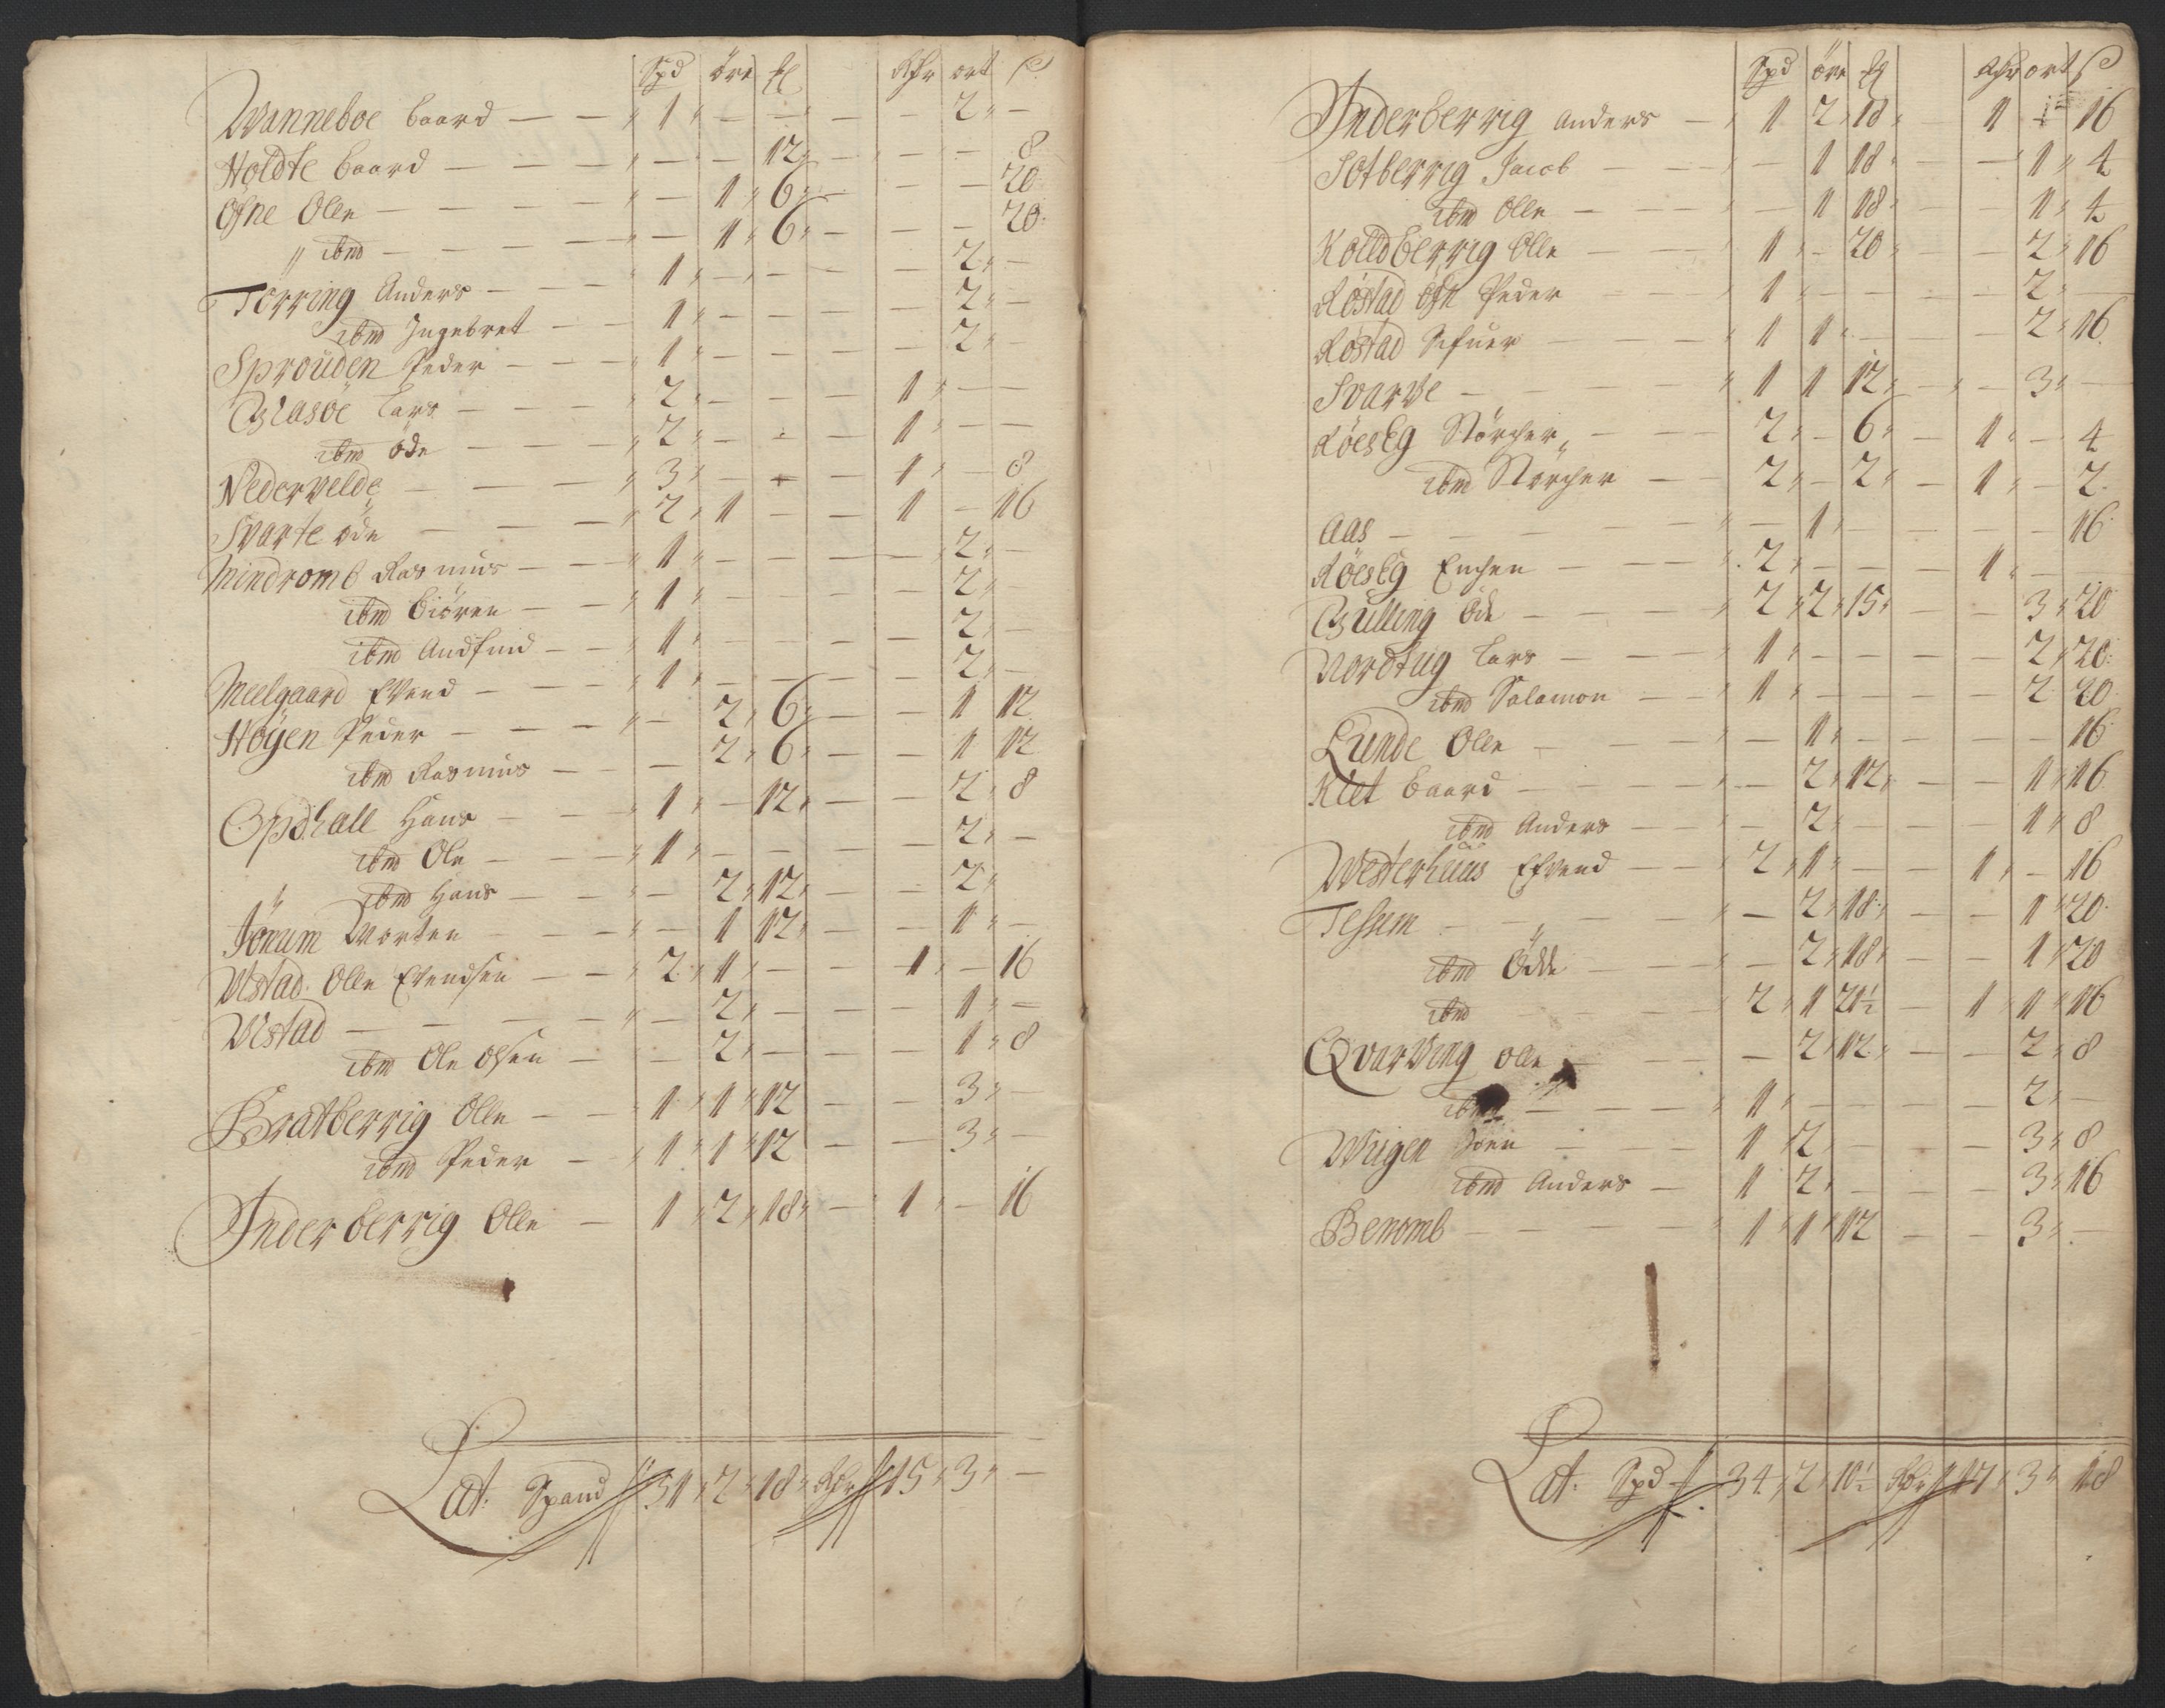 Spd öre ꝉ Rdr ort ß
Wanneboe baard — — 1 — — — — 2 —
Holdte baard — — — 12 — — — 8
Öfne Olle — — 1 6 — — — 20
" ibm — — 1 6 — — — 20
Törring Anders — — 1 — — — — 2 —
ibm Ingebret — — 1 — — — — 2 —
Sprouden Peder — — 1 — — — — 2 —
Glasöe Lars — — 2 — — — 1 — —
ibm öde — — 2 — — — 1 — —
Nedervelde — — 3 — — — 1 — 8
Svarte öde — — 2 1 — — 1 — 16
Mindromb Rasmus — — 1 — — — — 2 —
ibm Biören — — 1 — — — — 2 —
ibm Audfind — — 1 — — — — 2 —
Meelgaard Evend — — 1 — — — — 2 —
Höyen Peder — — — 2 6 — — 1 12
ibm Rasmus — — — 2 6 — — 1 12
Opdhall Hans — — 1 — 12 — — 2 8
ibm Ole — — 1 — — — — 2 —
" ibm Hans — — 2 12 — — 2
Jönum Morten — — — 1 12 — — 1 —
Vistad Olle Evendsen — — 2 1 — — 1 — 16
Vistad — — — 2 — — — 1 —
ibm Ole Olsen — — 2 — — — 1 8
Bratberrig Olle — — 1 1 12 — — 3 —
ibm Peder — 1 1 12 — — 3 —
Inderberrig Olle — 1 2 18 — 1 — 16
Lat: Spand 31 2 18 Rdr 15 3 —
Spd öre ꝉ Rdr ort ß
Inderberrig Anders — 1 2 18 — 1 — 16
Sotberrig Jacob — — — 1 18 — — 1 4
ibm Olle — — — 1 18 — — 1 4
Kolldberrig Olle — 1 — 20 — — 2 16
Röstad Öfn Peder — — 1 — — — — 2 —
Röstad Sifuer — — 1 1 — — — 2 16
Svarve — — 1 1 12 — — 3 —
Röeslg Störcher — — 2 — 6 — 1 — 4
ibm Störcher — — 2 — 2 — 1 — 2
Aas — — — 1 — — — — 16
Röeslg Enchen — — 2 — — — 1 — —
Gulling Öde — — 2 2 15 — — 3 20
Nordtug Lars — — 1 — — — — 2 20
ibm Salamon — — 1 — — — — 2 20
Lunde Olle — — — 1 — — — — 16
Klet baard — — — 2 12 — — 1 16
ibm Anders — — — 2 — — — 1 8
Westerhuus Efvend — — 2 1 — — 1 — 16
Tessem — — — 2 18 — — 1 20
ibm Ödde — — — 2 18 — — 1 20
ibm — — 2 1 21½ — 1 1 16
Qvarving Olle — — — 2 12 — — 2 8
ibm — — 1 — — — — 2 —
Wiigen Joen — — 1 2 — — — 3 8
ibm Anders — 1 2 — — — 3 16
Benomb — — 1 1 12 — — 3 —
Lat. Spd 34 2 10½ Rdr 17 3 18